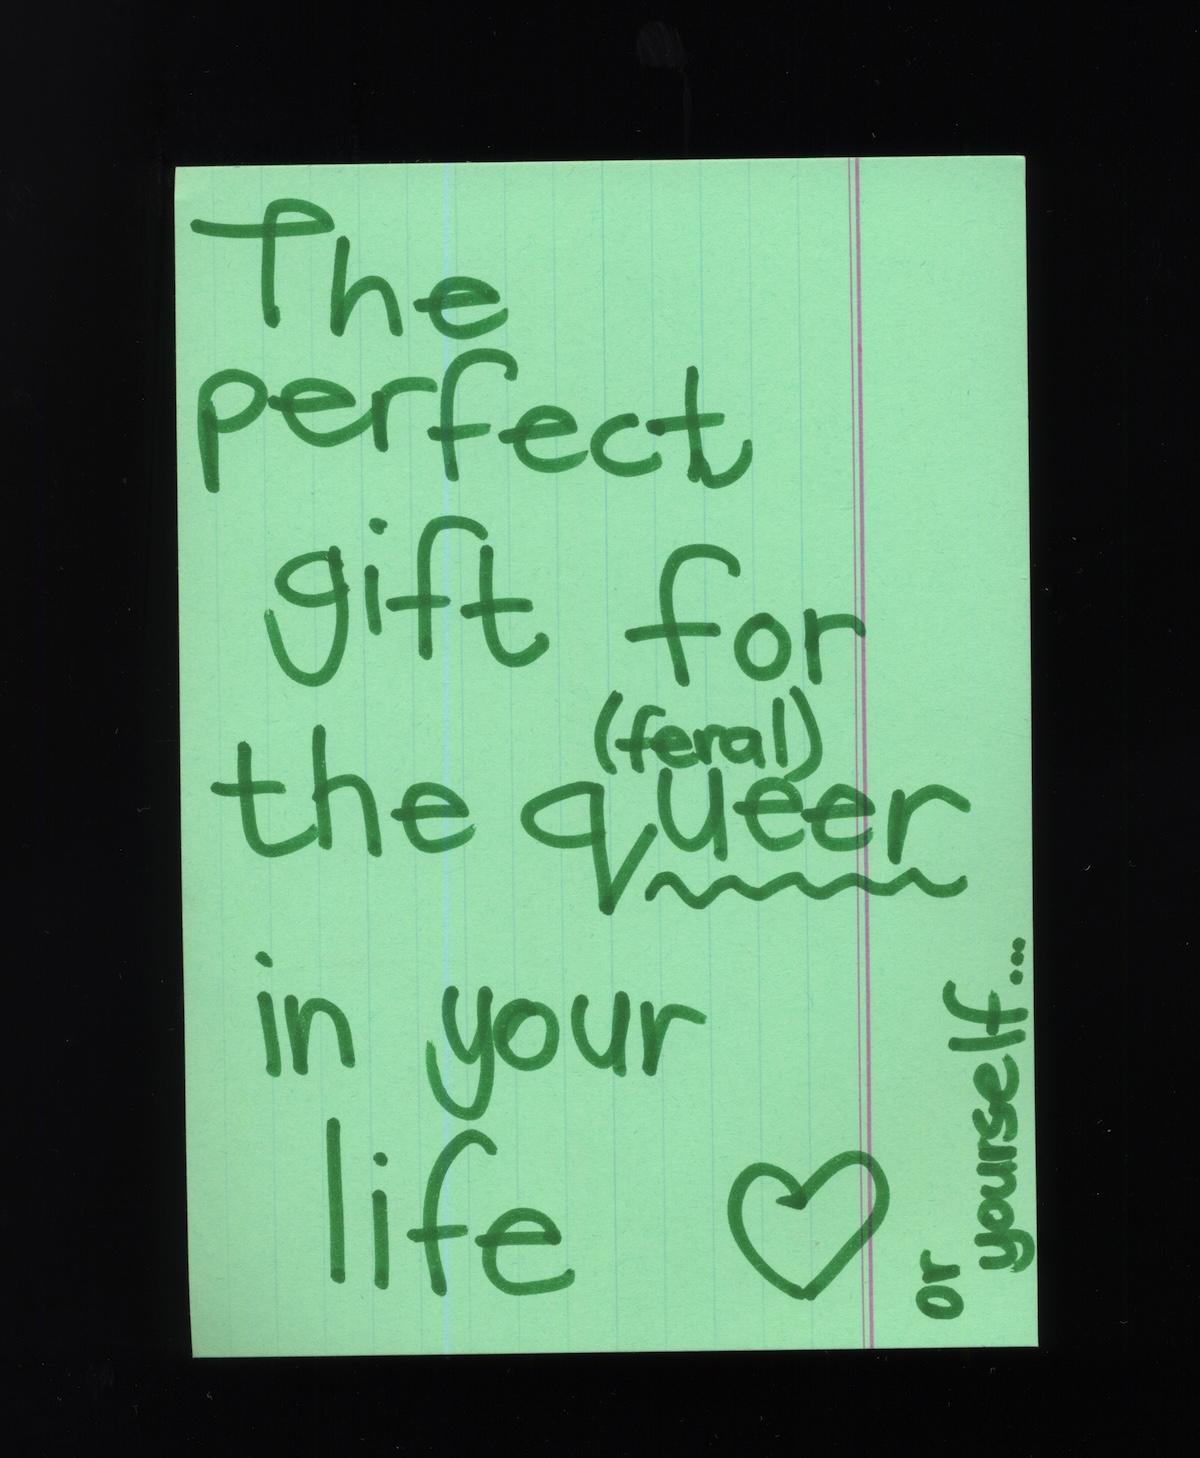 The
perfect
gift for
(feral)
the queer
in your
life ♡
or
yourself...